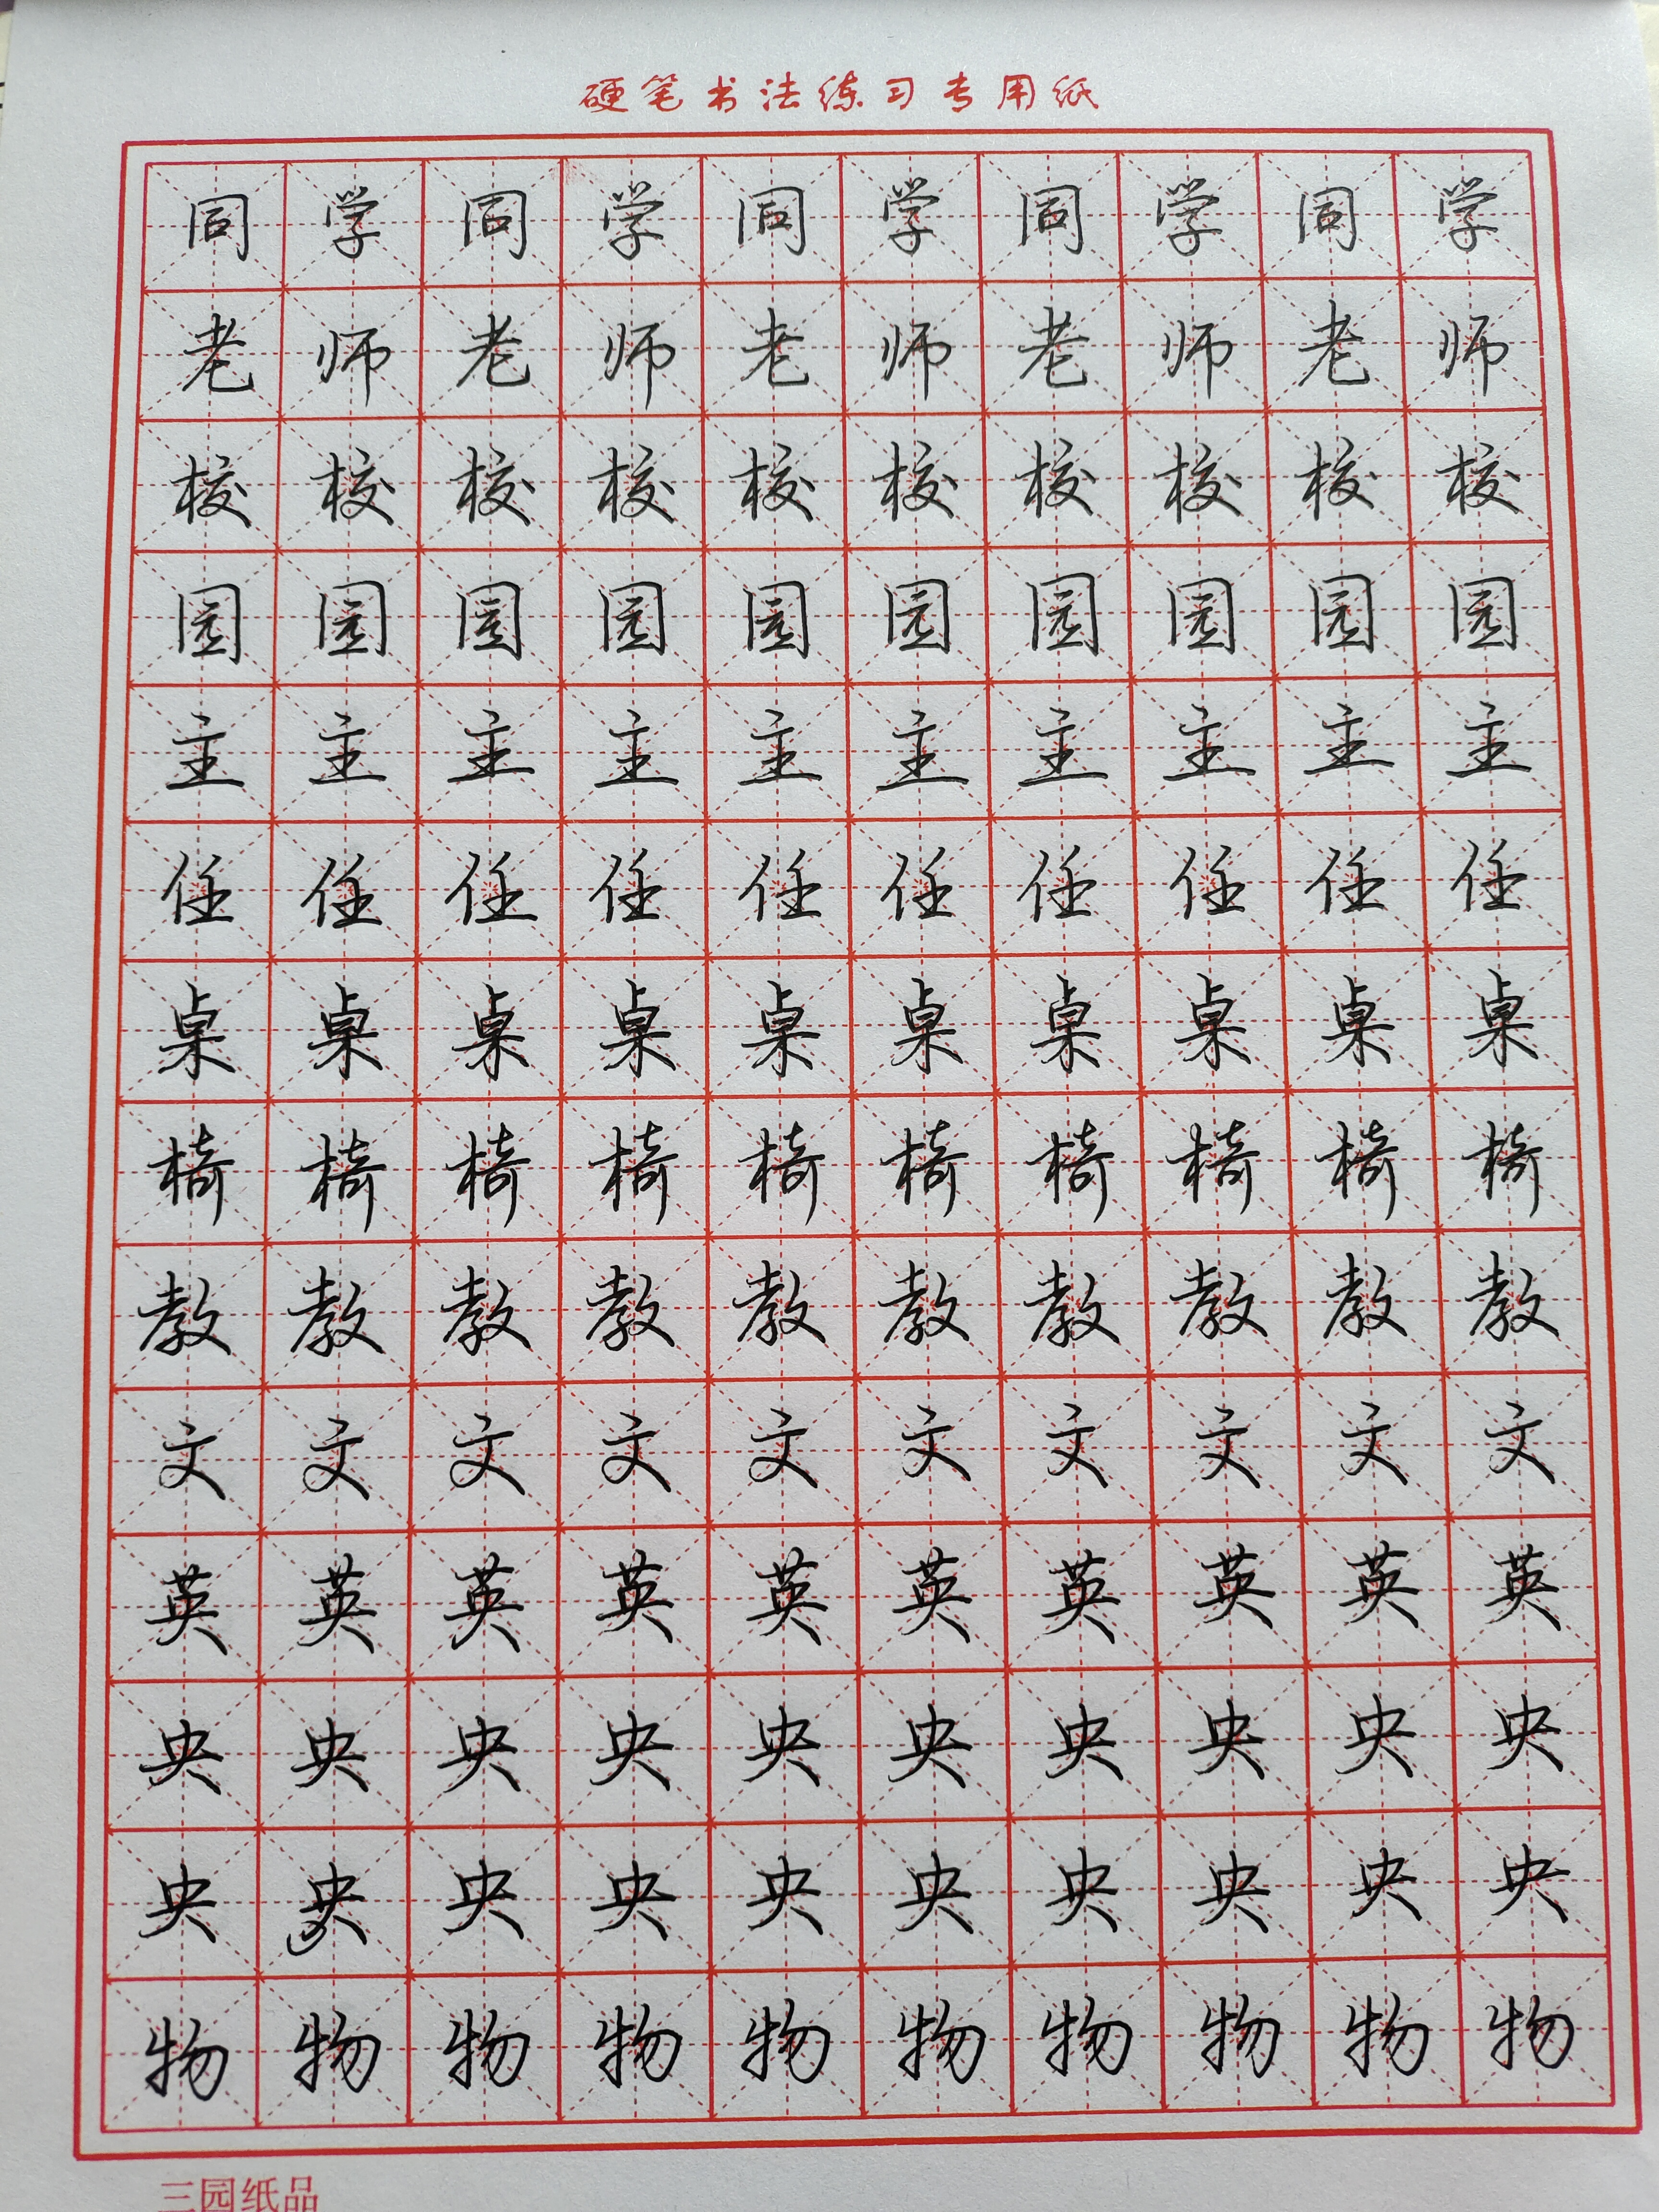 硬笔书法练习专用纸
同学同学同学同学同学
老师老师老师老师老师
校校校校校校校校校校
园园园园园园园园园园
主主主主主主主主主主
任任任任任任任任任任
桌桌桌桌桌桌桌桌桌桌
椅椅椅椅椅椅椅椅椅椅
教教教教教教教教教教
文文文文文文文文文文
英英英英英英英英英英
央央央央央央央央央央
央央央央央央央央央央
物物物物物物物物物物
三园纸品